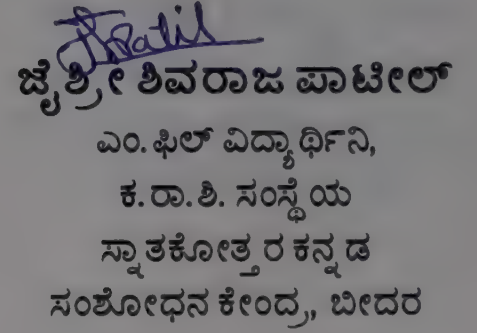 JPatil
ಜೈಶ್ರೀ ಶಿವರಾಜ ಪಾಟೀಲ್
ಎಂ.ಫಿಲ್ ವಿದ್ಯಾರ್ಥಿನಿ,
ಕ.ರಾ.ಶಿ. ಸಂಸ್ಥೆಯ
ಸ್ನಾತಕೋತ್ತರ ಕನ್ನಡ
ಸಂಶೋಧನ ಕೇಂದ್ರ, ಬೀದರ